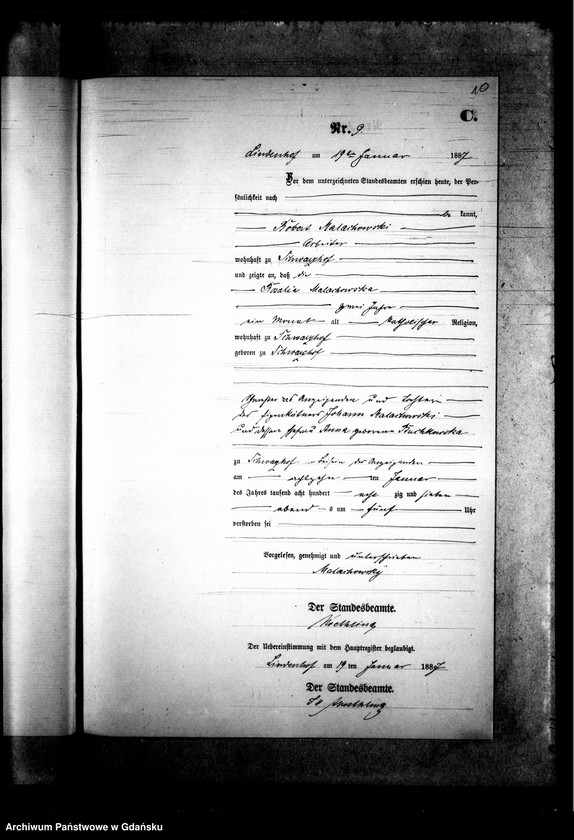 10
C.
Nr. 9.
Lindenhof am 19ten Januar 1887
Vor dem unterzeichneten Standesbeamten erschien heute, der Per-
sönlichkeit nach
be kannt,
Robert Malachowski
Arbeiter
wohnhaft zu
und zeigte an, daß die
Rosalia Malachowska
zwei Jahre
ein Monat alt katholischer Religion,
wohnhaft zu
geboren zu
Schwester des Anzeigenden und Tochter
des Eigenkäthners Johann Malachowski
und dessen Ehefrau Anna geborene
zu in Beisein des Anzeigenden
am achtzehn ten Januar
des Jahres tausend acht hundert acht zig und sieben
abend s um fünf Uhr
verstorben sei
Vorgelesen, genehmigt und unterschrieben
Malachowsky
Der Standesbeamte.
Der Uebereinstimmung mit dem Hauptregister beglaubigt.
Lindenhof am 19 ten Januar 1887
Der Standesbeamte.
Archiwum Państwowe w Gdańsku